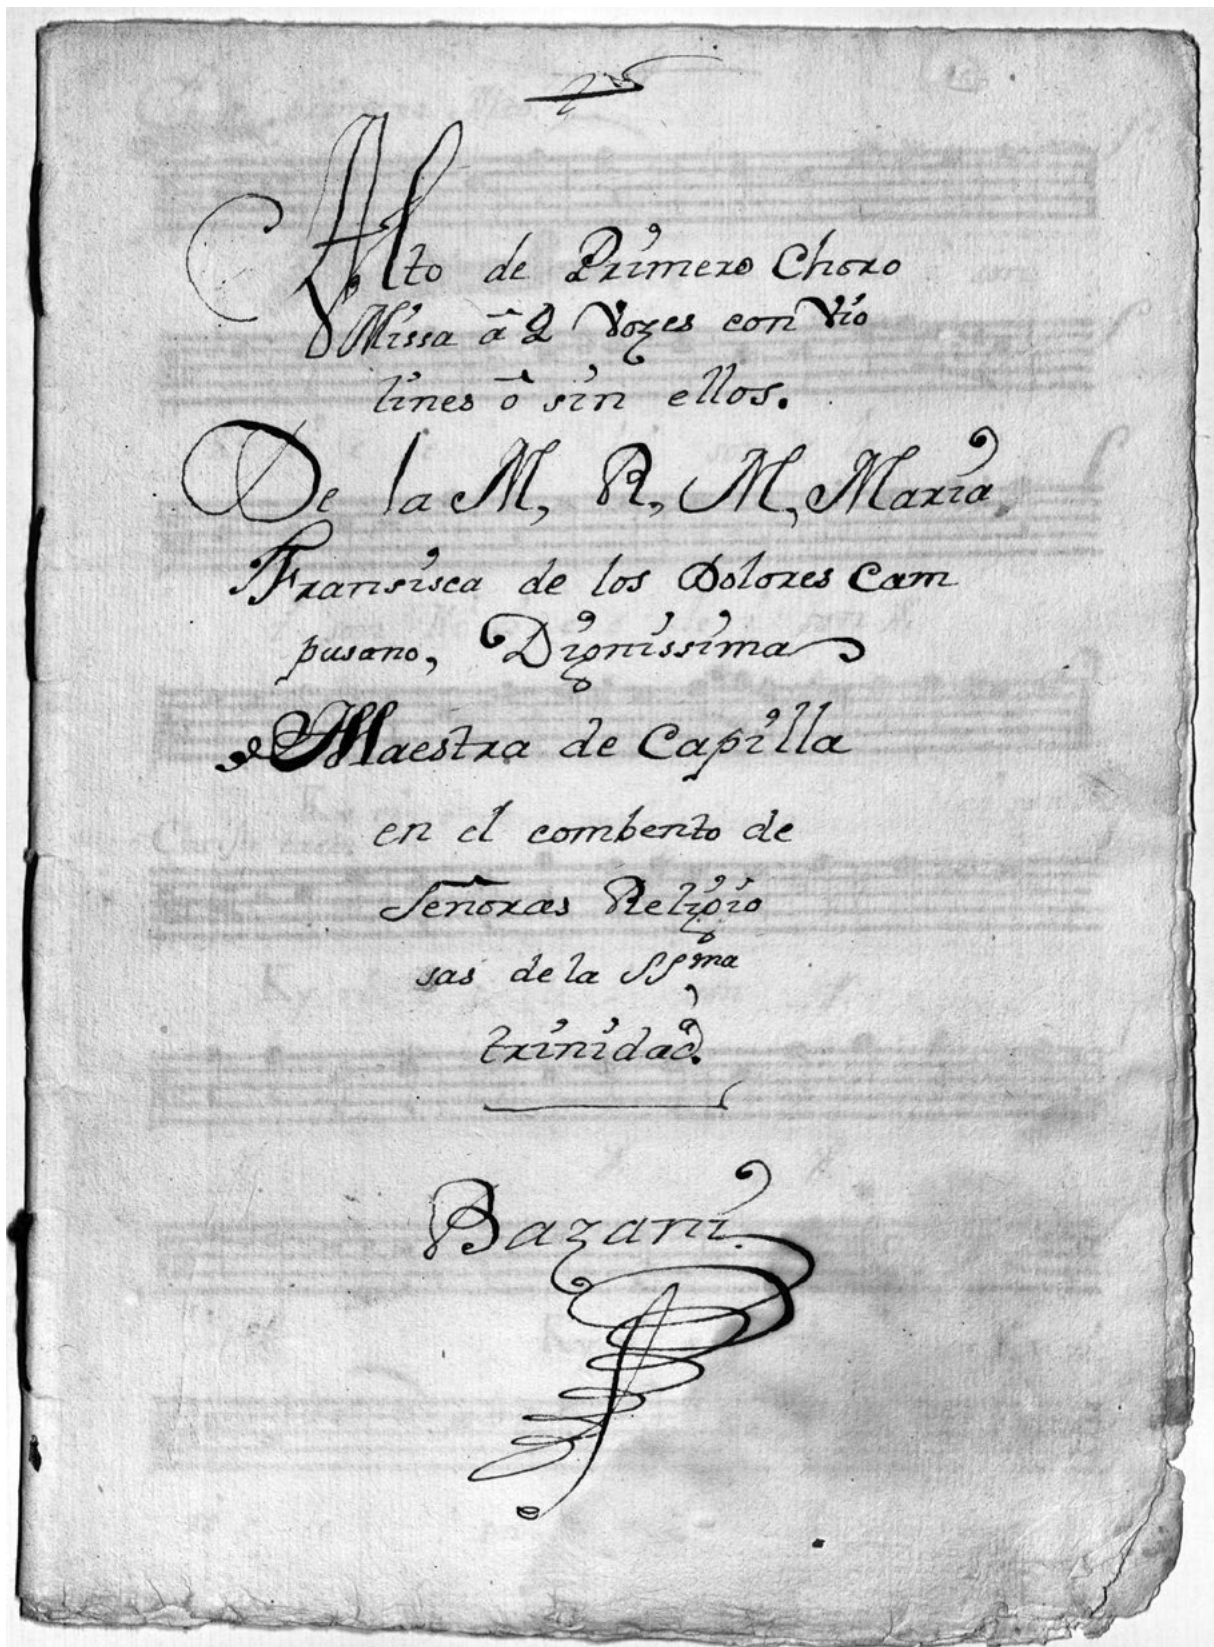 Alto de Primero Choro
Missa â 2 Vozes con Vio
lines ô sin ellos.
De la M, R, M, Maria
Fransisca de los Dolores Cam
pusano, Dignissima
Maestra de Capilla
en el combento de
Señoras Religio
sas de la SSma
trinidad.
Bazani